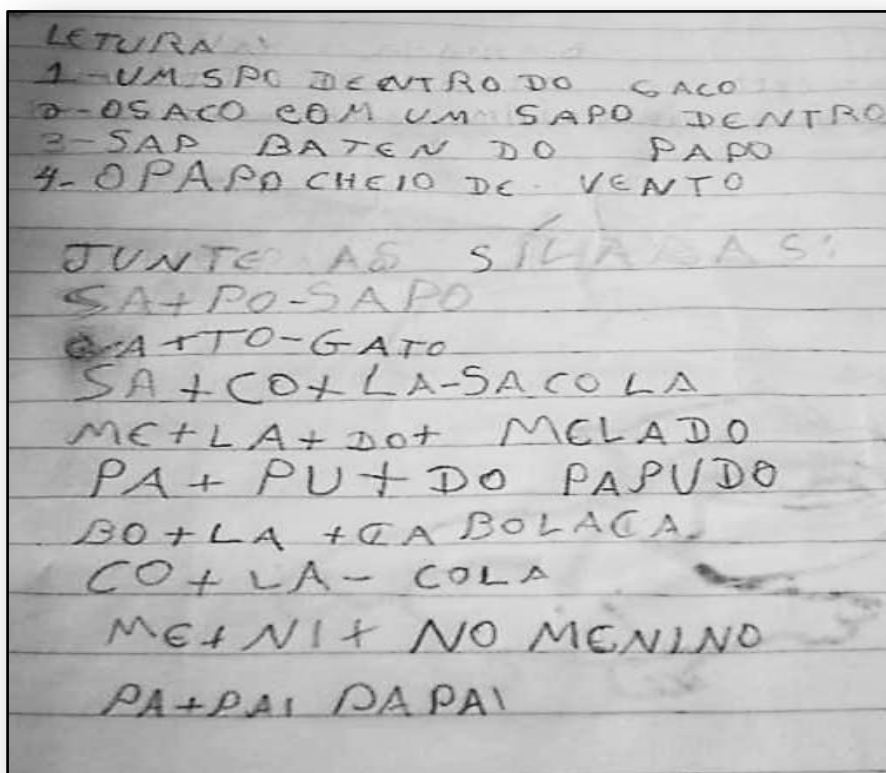 LETURA:
1-UM SPO DENTRO DO SACO
2-OSACO COM UM SAPO DENTRO
3-SAP BATEN DO PAPO
4-OPAPO CHEIO DE VENTO
JUNTE AS SÍLABAS:
SA+PO-SAPO
GA+TO-GATO
SA+CO+LA-SACOLA
ME+LA+DO+ MELADO
PA+PU+DO PAPUDO
BO+LA+CA BOLACA
CO+LA-COLA
ME+NI+NO MENINO
PA+PAI PAPAI